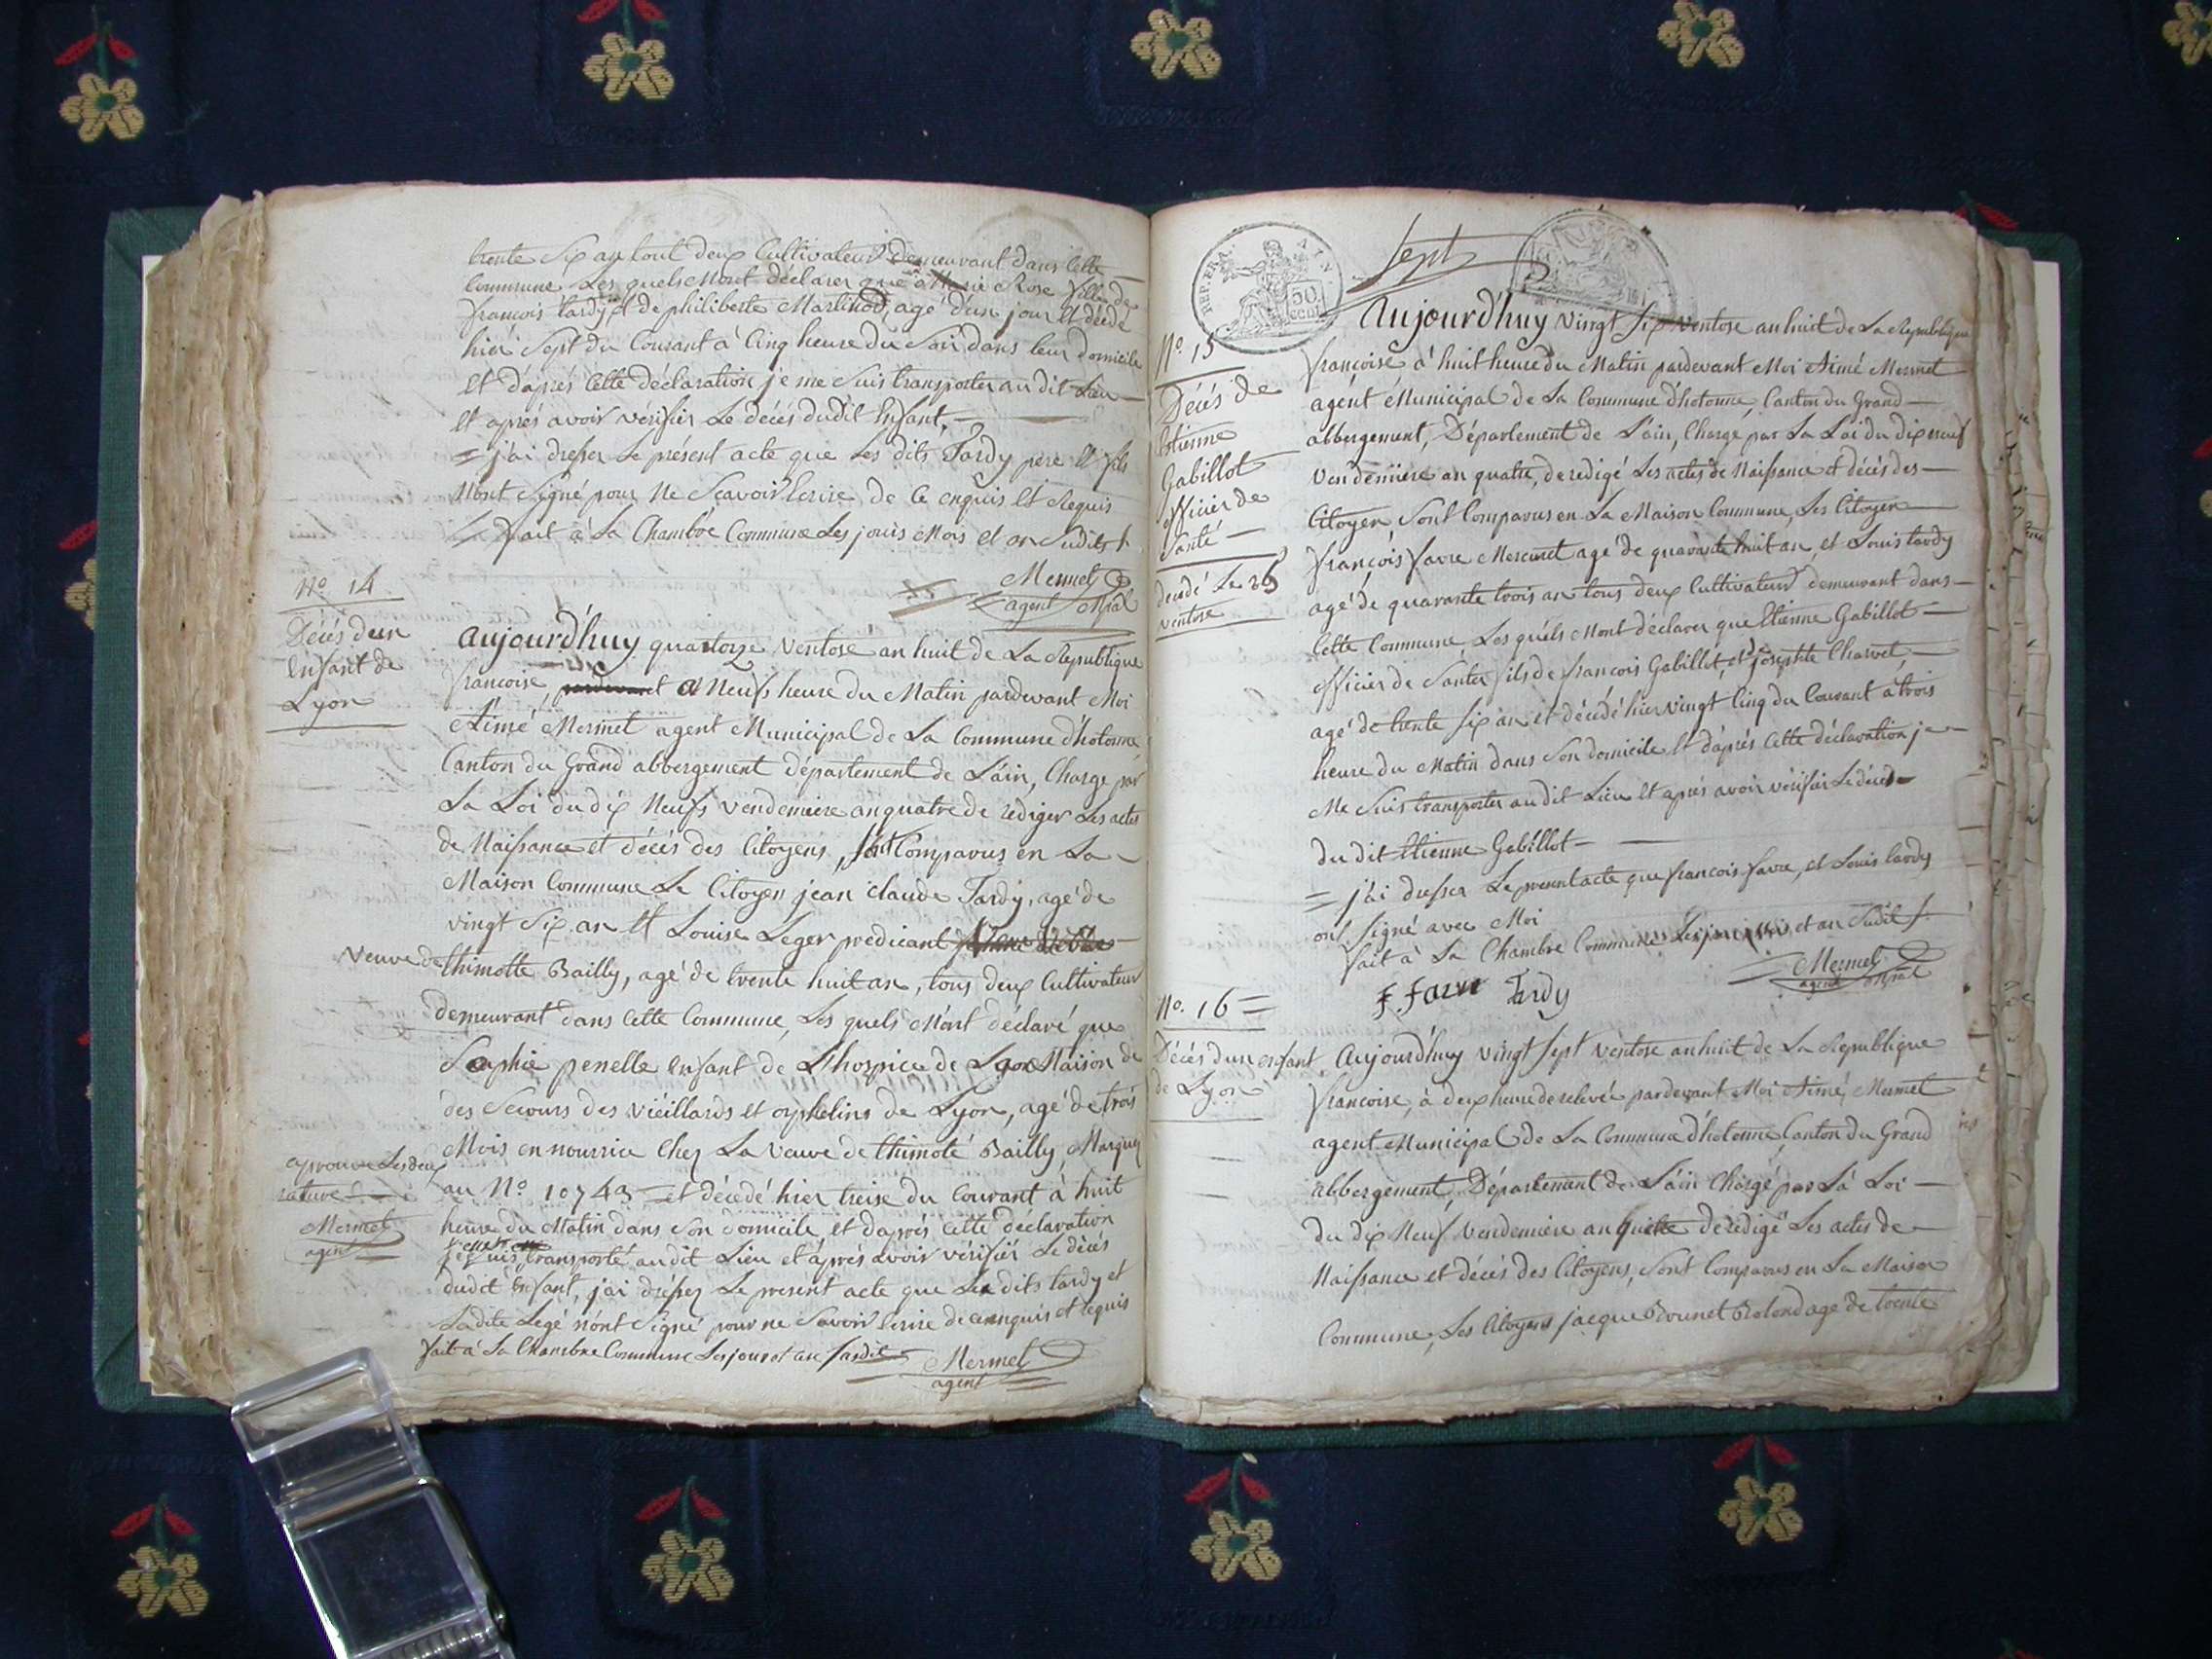 trente Six an tout deux Cultivateur demeurant dans Cette
Commune Les quels Mont déclarer que Marie Rose fille de
françois tardy, et de philiberte Martinod, agé d'un jour et décédé
hier Sept du Courant à Cinq heure du Soir dans leur domicile
et d'aprés Cette déclaration je me Suis transporter au dit Lieu
et aprés avoir vérifier Le décés dudit Enfant,
= j'ai dresser Le présent acte que Les dits Tardy pere et fils
Nont Signé pour Ne Scavoir Ecrire de Ce enquis et Requis
fait à La Chambre Commune Les jours Mois et an Sudits
Mermet
agent Mpal
No. 14
Décés d'un
Enfant de
Lyon
aujourd'huy quatorze Ventose an huit de La Republique
françoise, a Neufs heure du Matin pardevant Moi
Aimé Mermet agent Municipal de La Commune d'hotonne
Canton du Grand abbergement département de L'ain, Charge par
La Loi du dix Neufs Vendemiere an quatre de rediger Les actes
de Naissance et décés des Citoyens, sont Comparus en La
Maison Commune Le Citoyen jean Claude Tardy, agé de
vingt Six an et Louise Leger predicant
Veuve de thimotte Bailly, agé de trente huit an, tous deux Cultivateur
demeurant dans Cette Commune, Les quels M'ont déclaré que
Sophie penelle enfant de L'hospice de Lyon Maison de
des Secours des viéillards et orphelins de Lyon, agé de trois
Mois en nourrice Chez La Veuve de thimoté Bailly, Marquez
au No. 10743 et décédé hier treise du Courant à huit
heure du Matin dans Son domicile, et d'aprés Cette déclaration
transporté au dit Lieu et aprés avoir vérifiér Le décés
dudit Enfant, j'ai dréssez Le present acte que Les dits tardy et
Ladite Legé n'ont Signéé pour ne Savoir Ecrire de ce enquis et requis
fait à La Chambre Commune Les jour et an Susdit
Mermet
agent
aprouve Les deux
rature
Mermet
agent
REP. FRA. AIN
50
cent.
Sept
No. 15
Décés de
Etienne
Gabillot
officier de
Santé
decédé Le 25
ventose
Aujourd'huy Vingt Six Ventose an huit de La Republique
françoise à huit heure du Matin pardevant Moi Aimé Mermet
agént Municipal de La Commune d'hotonne, Canton du Grand
abbergement, Département de L'ain, Charge par La Loi du dix neuf
Vendémiere an quatre, de redigé Les actes de Naissance et décés des
Citoyen Sont Comparus en La Maison Commune, Les Citoyen
françois favre Mercuret agé de quarante huit an, et Louis tardy
agé de quarante trois an tous deux Cultivateur demeurant dans
Cette Commune, Les quéls Mont déclarer que Etienne Gabillot
officier de Santer fils de françois Gabillot, et de josephte Charvet,
agé de trente Six an et décédé hier vingt Cinq du Courant à trois
heure du Matin dans Son domicile et d'aprés Cette déclaration je
Me Suis transporter au dit Lieu et aprés avoir vérifier Le décés
du dit Etienne Gabillot
= j'ai dresser Le present acte que françois favre, et Louis tardy
ont Signé avec Moi
fait à La Chambre Commune Les jour, Mois et an Sudit
Mermet
agent Mpal
F. favre Tardy
No. 16 =
Décés d'un enfant
de Lyon
Aujourd'huy vingt Sept Ventose an huit de La Republique
françoise, à deux heure de relevée pardevant Moi Aimé, Mermet
agent Municipal de La Commune d'hotonne, Canton du Grand
abbergement, Département de L'áin Chargé par La Loi
du dix Neuf Vendemiere an quatre de redigé Les actes de
Naissance et décés des Citoyens, Sont Comparus en La Maison
Commune, Les Citoyens jacque Brunet Rolond agé de trente